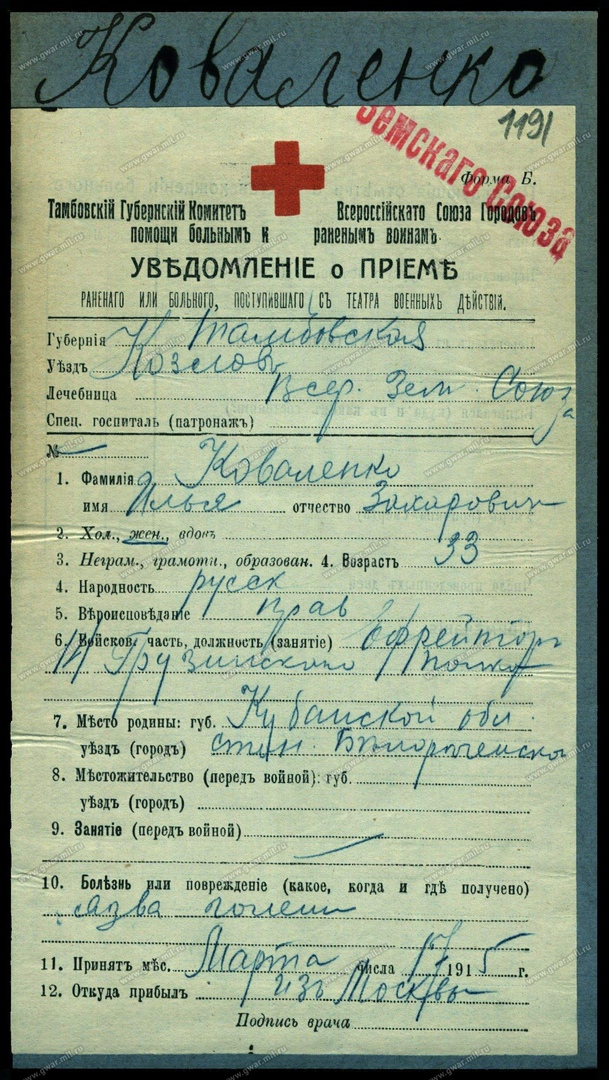 Коваленко
1191
Земскаго Союза
Форма Б.
Тамбовскій Губернскій Комитетъ Всероссійскато Союза Городовъ
помощи больнымъ и раненымъ воинамъ
УВѢДОМЛЕНІЕ о ПРІЕМѢ
РАНЕНАГО ИЛИ БОЛЬНОГО, ПОСТУПИВШАГО СЪ ТЕАТРА ВОЕННЫХЪ ДѢЙСТВІЙ.
Губернія Тамбовская
Уѣздъ Козловъ
Лечебница Всер. Зем. Союза
Спец. госпиталь (патронажъ)
№ —
1. Фамилія Коваленко
имя Илья отчество Захарович
2. Хол., жен., вдовъ
3. Неграм., грамотн., образован. 4. Возрастъ 33
4. Народность русск
5. Вѣроисповѣданіе прав
6. Войсков. часть, должность (занятіе) Ефрейторъ
14 Грузинскаго полка
7. Мѣсто родины: губ. Кубанской обл.
уѣздъ (городъ) стан. Бѣлореченско
8. Мѣстожительство (передъ войной): губ.
уѣздъ (городъ)
9. Занятіе (передъ войной)
10. Болѣзнь или поврежденіе (какое, когда и гдѣ получено)
язва голени
11. Принятъ мѣс. Марта числа 17 1915 г.
12. Откуда прибылъ изъ Москвы
Подпись врача
www.gwar.mil.ru